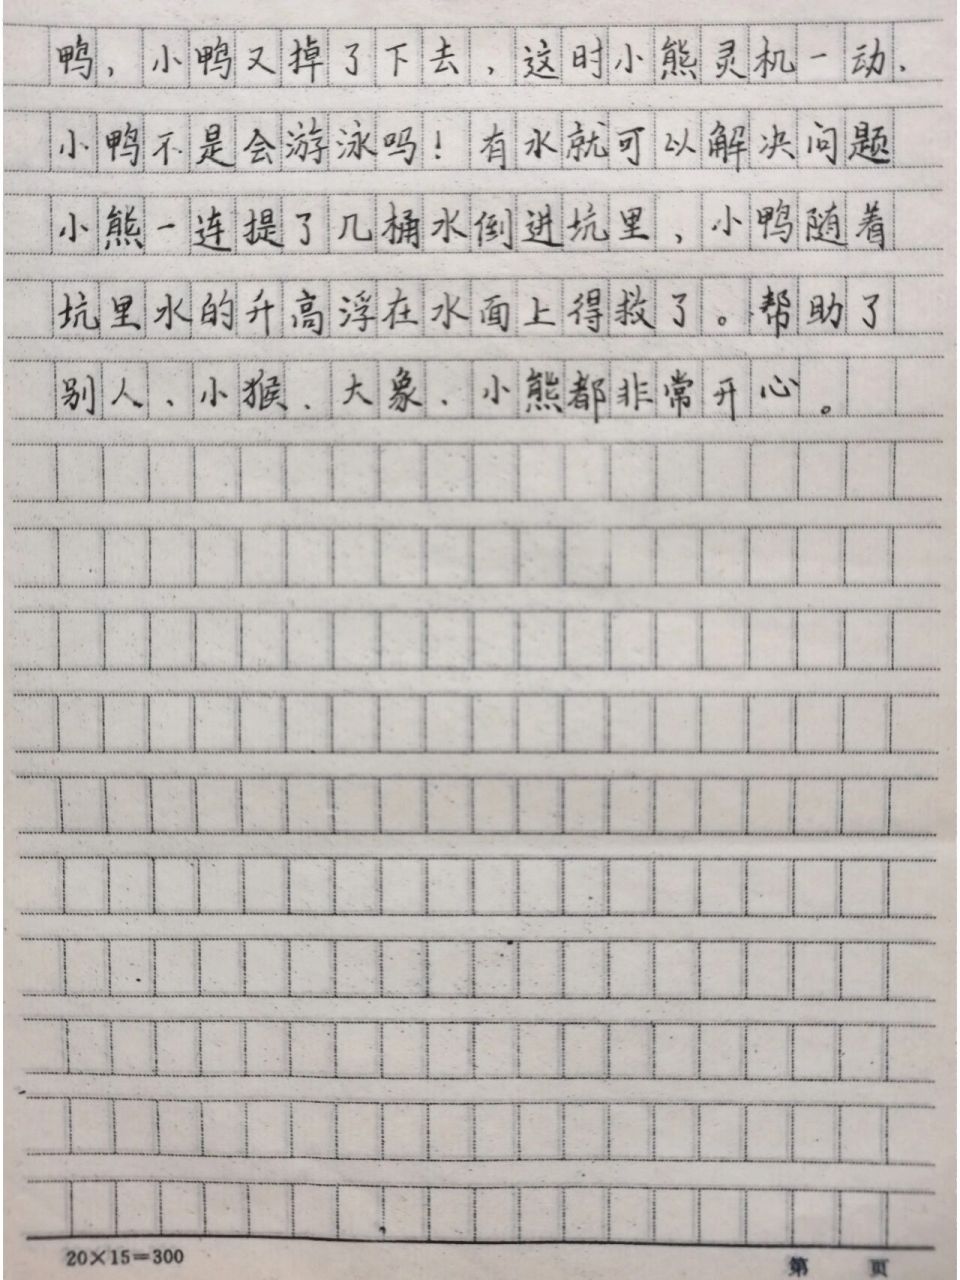 鸭，小鸭又掉了下去，这时小熊灵机一动.
小鸭不是会游泳吗！有水就可以解决问题
小熊一连提了几桶水倒进坑里，小鸭随着
坑里水的升高浮在水面上得救了。帮助了
别人、小猴、大象、小熊都非常开心。
20×15=300
第 页